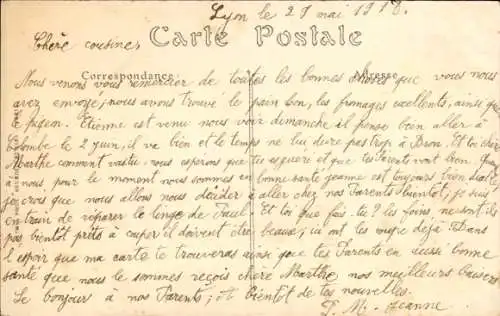 Lyon le 29 mai 1918.
Carte Postale
Chère cousine,
Correspondance
Adresse
Nous venons vous remercier de toutes les bonnes choses que vous nous
avez envoyé; nous avons trouvé le pain bon, les fromages excellents, ainsi que
le pigeon. Etienne est venu nous voir dimanche il pense bien aller à
Colombe le 2 juin, il va bien et le temps ne lui dure pas trop à Bron. Et toi chère
Marthe comment vas tu. nous esperons que tu es guerie et que tes Parents vont bien. Quand
à nous pour le moment nous sommes en bonne santé jeanne est toujours bien
je crois que nous allons nous décider à aller chez nos Parents bientôt; je suis
en train de réparer le linge de Paul. Et toi que fais-tu? les foins, ne sont ils
pas bientôt prêts à couper il doivent être beaux; ici ont les coupe déjà. Dans
l'espoir que ma carte te trouveras ainsi que tes Parents en aussi bonne
santé que nous le sommes reçois chère Marthe nos meilleurs baisers
Le bonjour à nos Parents; à bientôt de tes nouvelles.
P. M. Jeanne